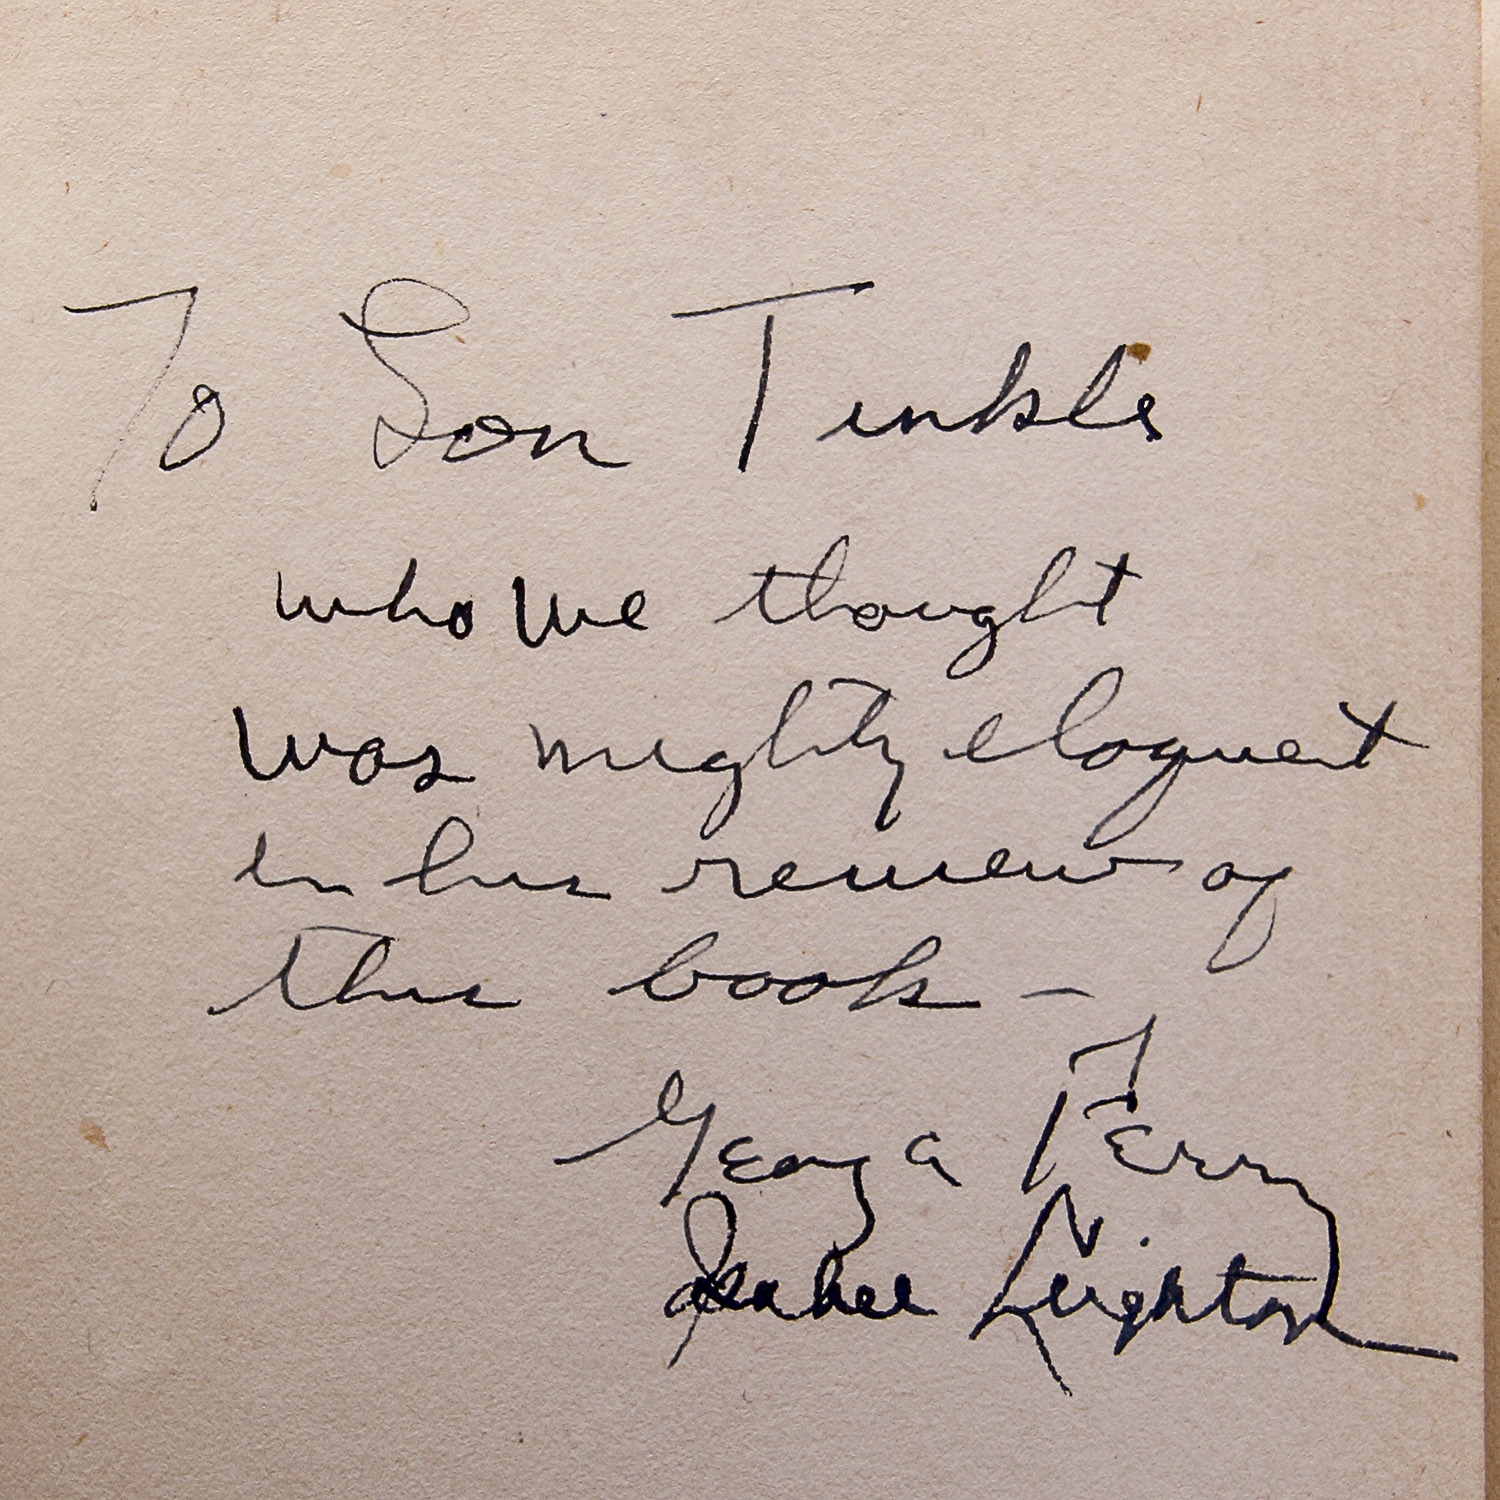 To Lon Tinkle
who we thought
was mighty eloquent
in his review of
this book –
George Perry
Isabel Leighton